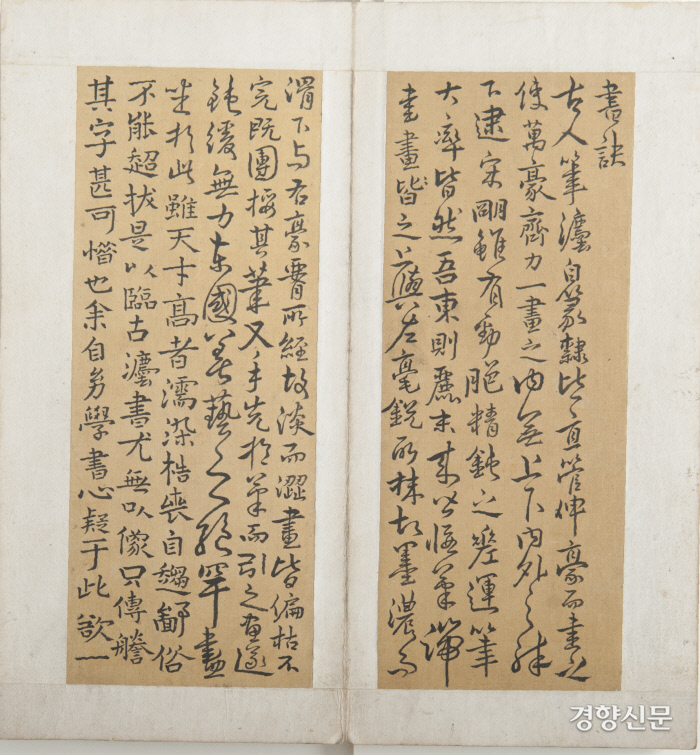 書訣
古人筆灋自篆隸皆直管伸豪而書之
使萬豪齊力一畫之內無上下內外之殊
下逮宋明雖有勁脆精鈍之差運筆
大率皆然吾東則麗末來皆偃筆端
書畫皆之上與左毫銳所抹故墨濃而
滑下與右豪腰所經故淡而澀畫皆偏枯不
完既其筆又手先於筆而引之畫遂
鈍緩無力東國藝之絶罕畫
坐於此雖天才高者濡染梏喪自趨鄙俗
不能超拔是以臨古灋書尤無以像只傳謄
其字甚可惜也余自幼學書心疑于此欲一
경향신문